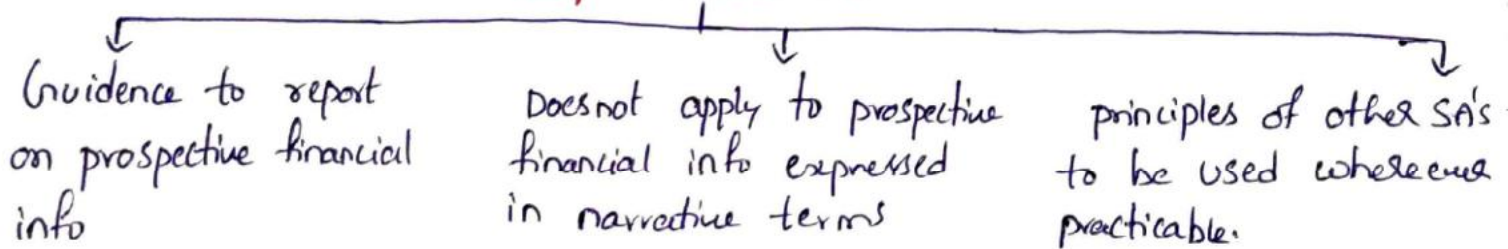 Guidence to report
on prospective financial
info
Does not apply to prospective
financial info expressed
in narrative terms
principles of other SA's
to be used whereever
practicable.